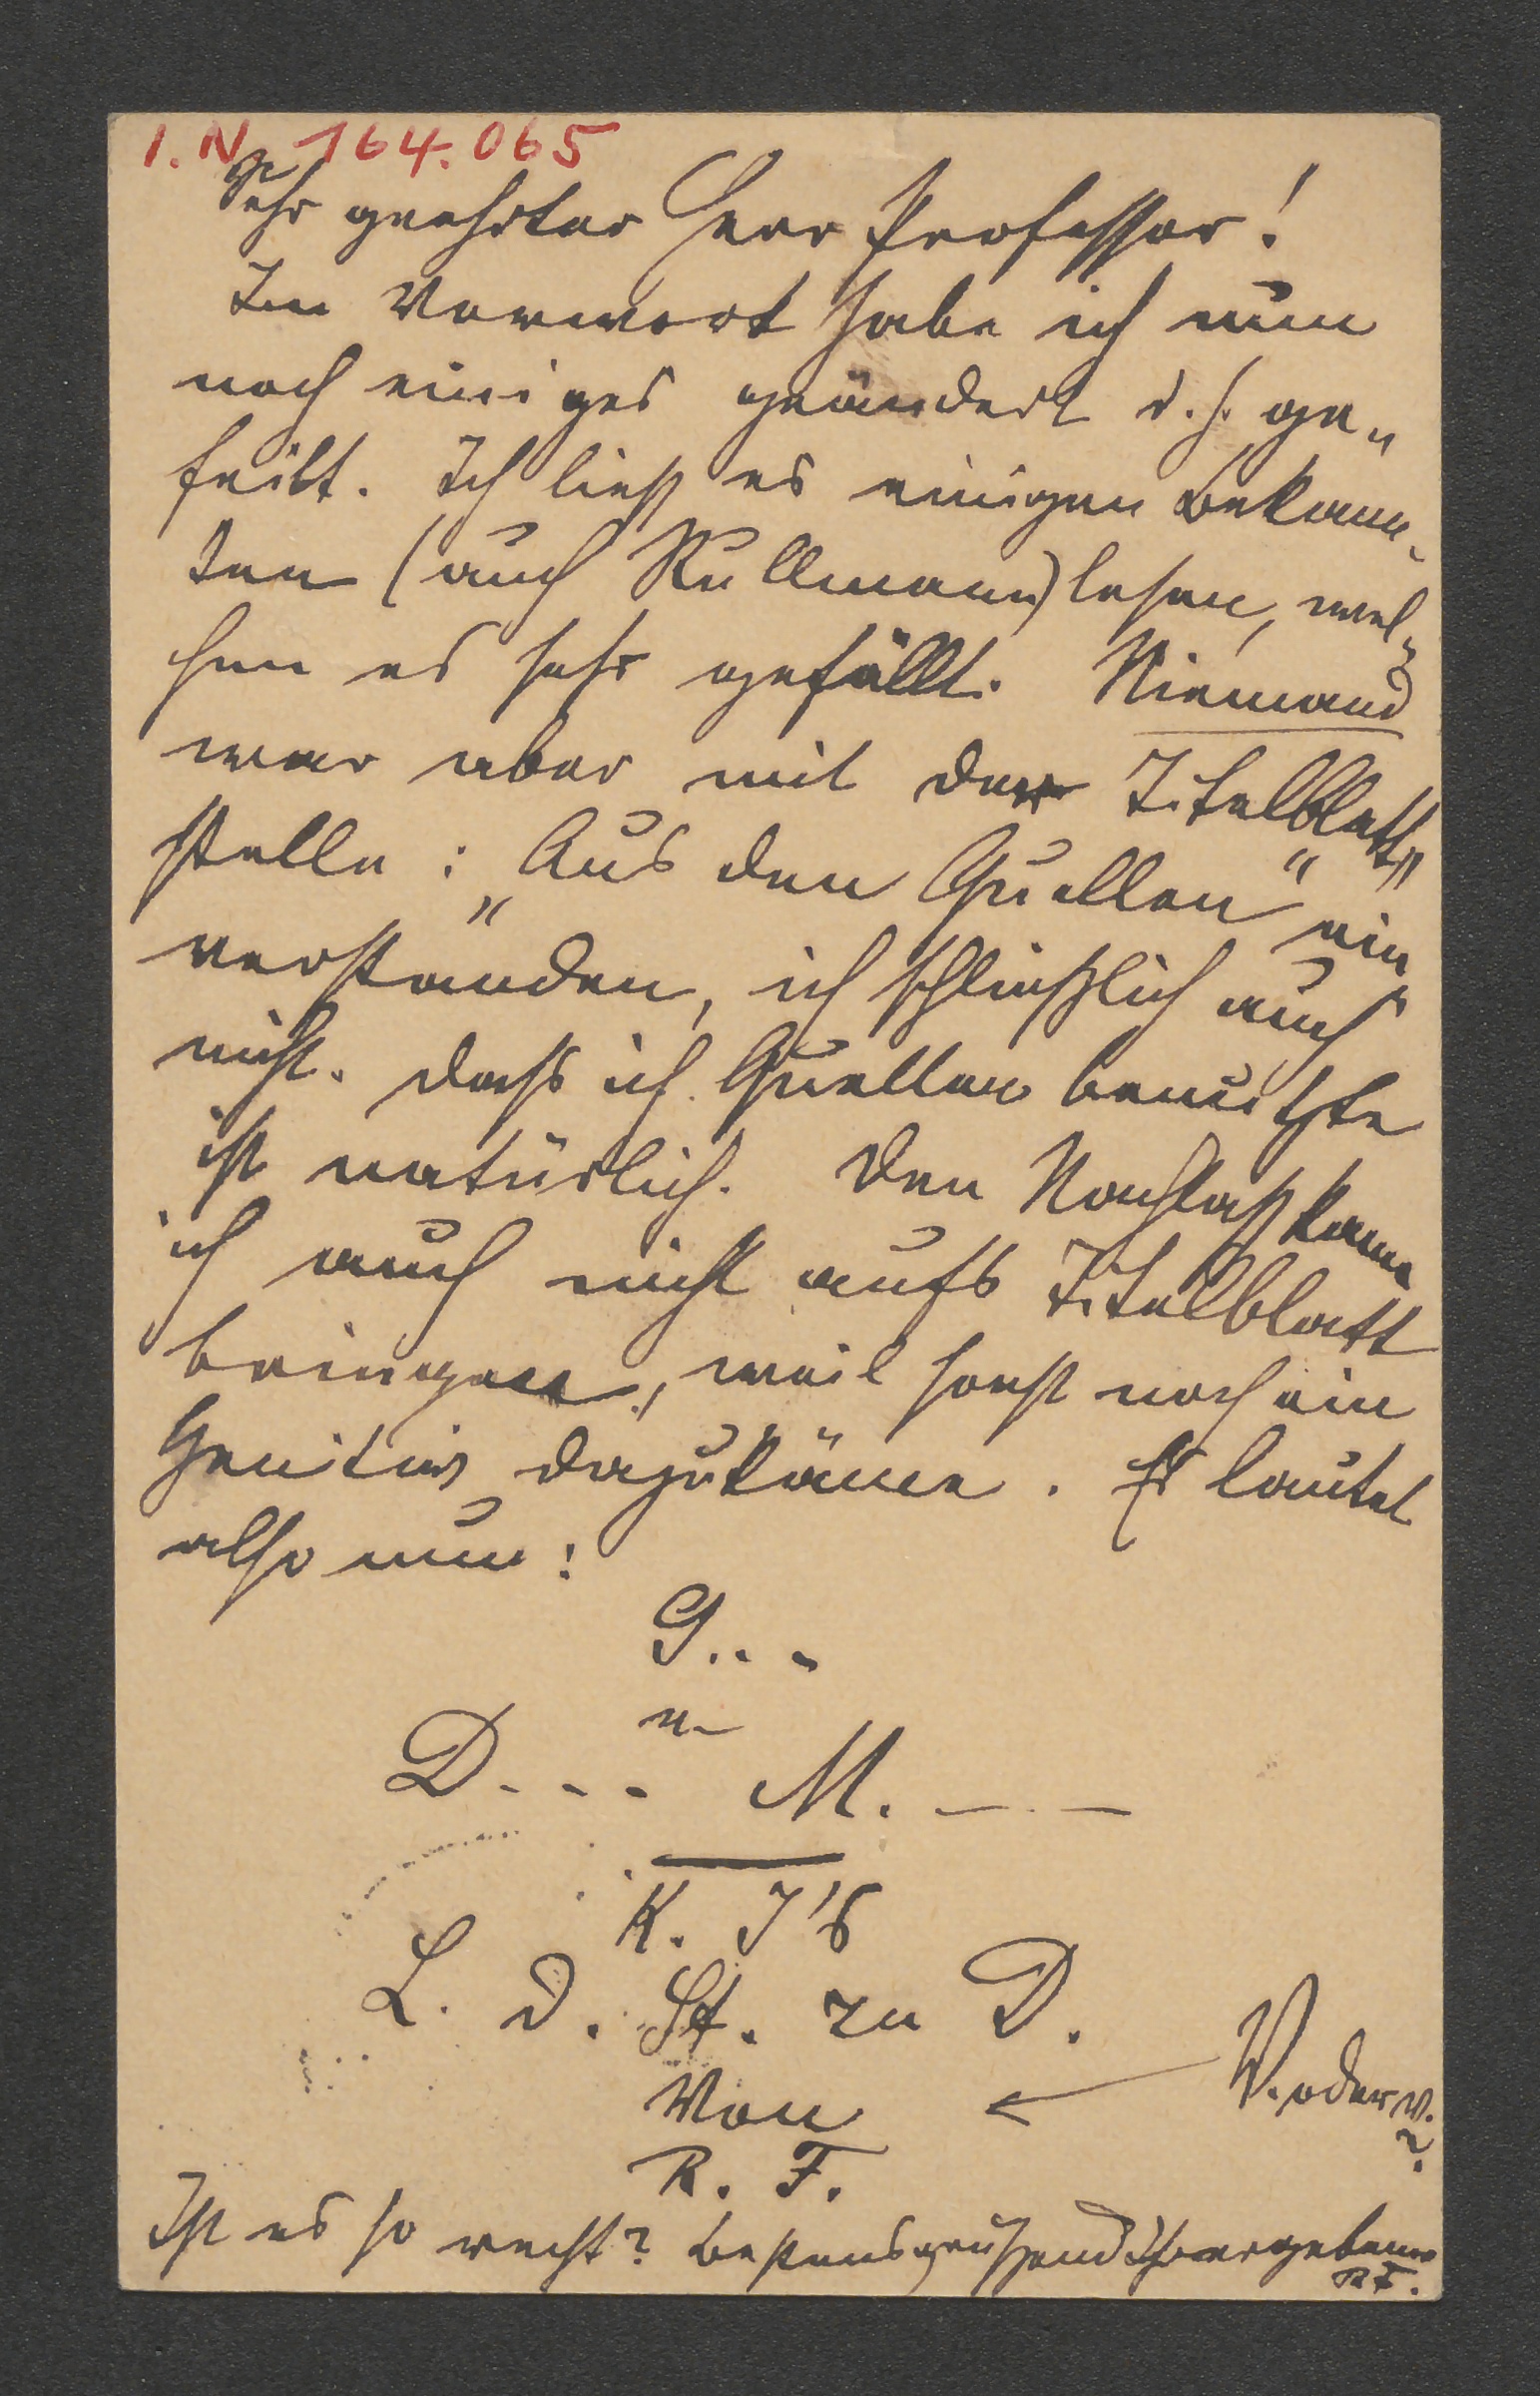 I. N. 164.065
Sehr geehrter Herr Professor!
Im Vorwort habe ich nun
noch einiges geändert d. h. ge„
feilt. Ich ließ es einigen Bekann„
ten (auch Kullmann) lesen, wel„
chen es sehr gefällt. Niemand
war aber mit der Titelblatt„
stelle: „Aus den Quellen“ ein
verstanden, ich schließlich auch
nicht. Dass ich Quellen benützte
ist natürlich. Den Nachlaß kann
ich auch nicht aufs Titelblatt
bringen, weil sonst noch ein
Genitiv dazukäme. Es lautet
also nun:
G...
u
D--- M. ---
K. I's
L. d. St. zu D.
Von ← V. oder v.?
R. F.
Ist es so recht? Bestens grüßend Ihr ergebener
R F.